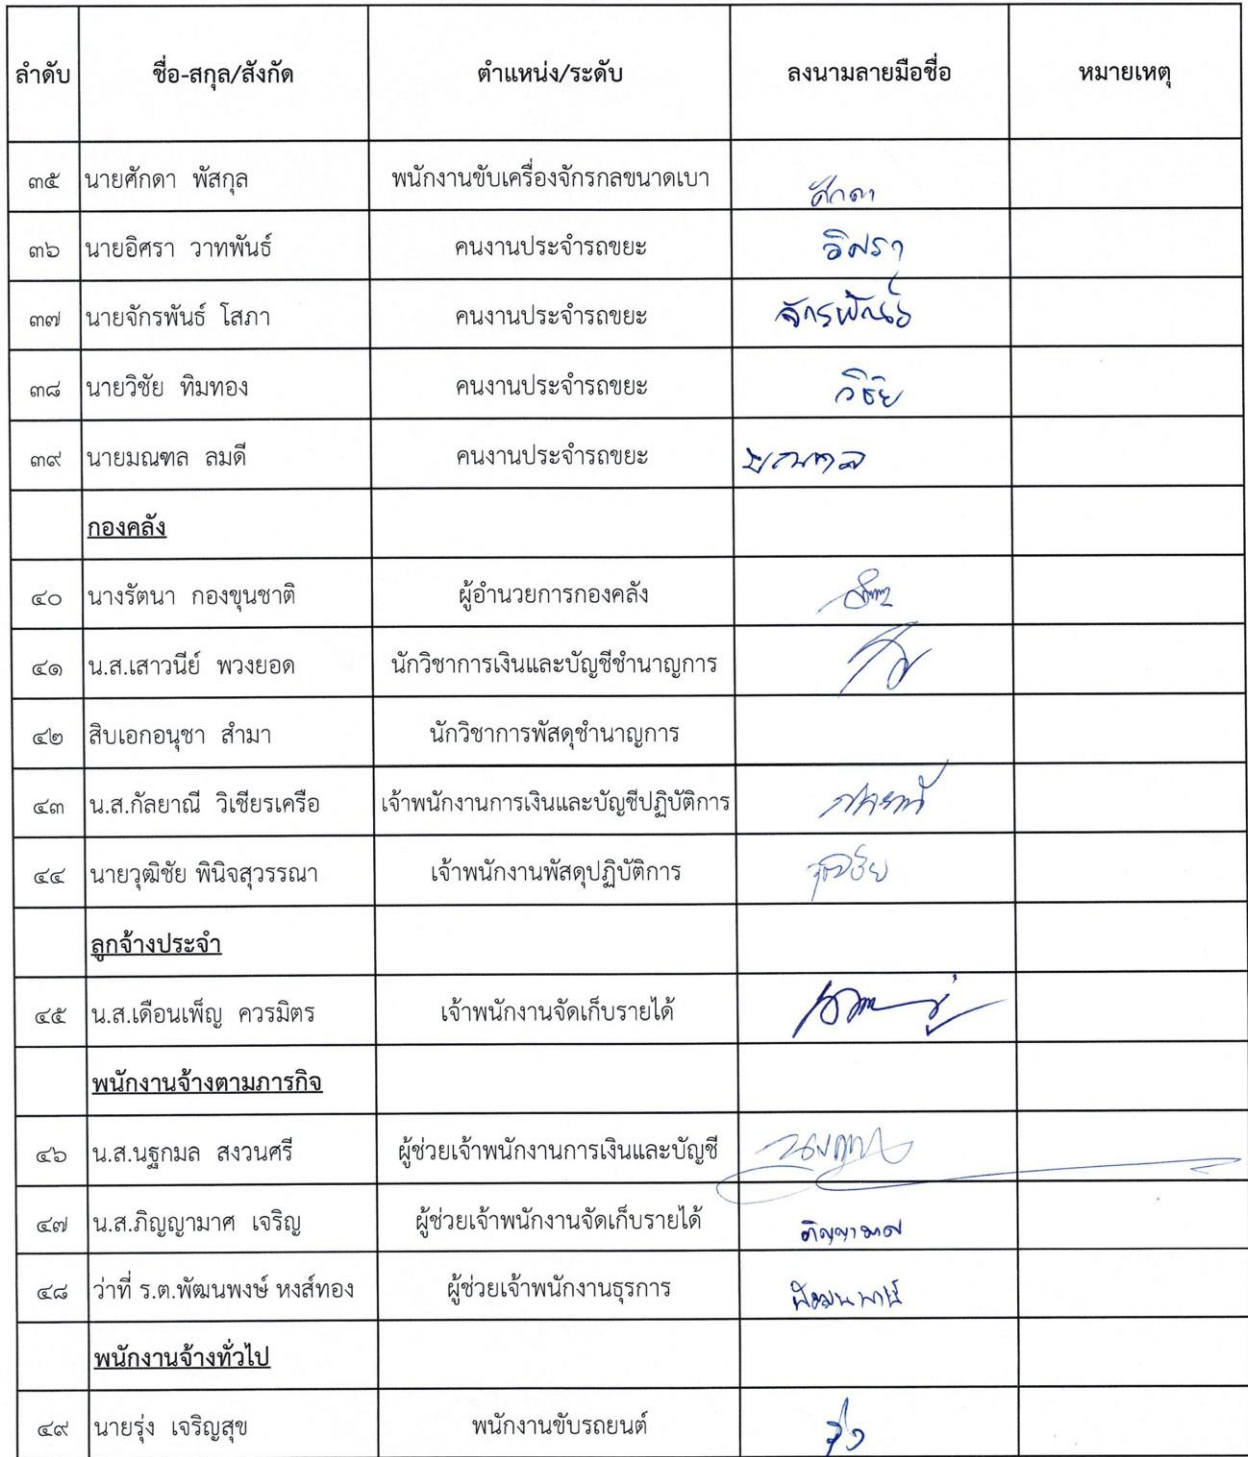 ลำดับ ชื่อ-สกุล/สังกัด ตำแหน่ง/ระดับ ลงนามลายมือชื่อ หมายเหตุ
๓๕ นายศักดา พัสกุล พนักงานขับเครื่องจักรกลขนาดเบา ศักดา
๓๖ นายอิศรา วาทพันธ์ คนงานประจำรถขยะ อิศรา
๓๗ นายจักรพันธ์ โสภา คนงานประจำรถขยะ จักรพันธ์
๓๘ นายวิชัย ทิมทอง คนงานประจำรถขยะ วิชัย
๓๙ นายมณฑล ลมดี คนงานประจำรถขยะ มณฑล
กองคลัง
๔๐ นางรัตนา กองขุนชาติ ผู้อำนวยการกองคลัง
๔๑ น.ส.เสาวนีย์ พวงยอด นักวิชาการเงินและบัญชีชำนาญการ
๔๒ สิบเอกอนุชา สำมา นักวิชาการพัสดุชำนาญการ
๔๓ น.ส.กัลยาณี วิเชียรเครือ เจ้าพนักงานการเงินและบัญชีปฏิบัติการ
๔๔ นายวุฒิชัย พินิจสุวรรณา เจ้าพนักงานพัสดุปฏิบัติการ วุฒิชัย
ลูกจ้างประจำ
๔๕ น.ส.เดือนเพ็ญ ควรมิตร เจ้าพนักงานจัดเก็บรายได้
พนักงานจ้างตามภารกิจ
๔๖ น.ส.นฐกมล สงวนศรี ผู้ช่วยเจ้าพนักงานการเงินและบัญชี
๔๗ น.ส.ภิญญามาศ เจริญ ผู้ช่วยเจ้าพนักงานจัดเก็บรายได้ ภิญญามาศ
๔๘ ว่าที่ ร.ต.พัฒนพงษ์ หงส์ทอง ผู้ช่วยเจ้าพนักงานธุรการ พัฒนพงษ์
พนักงานจ้างทั่วไป
๔๙ นายรุ่ง เจริญสุข พนักงานขับรถยนต์ รุ่ง